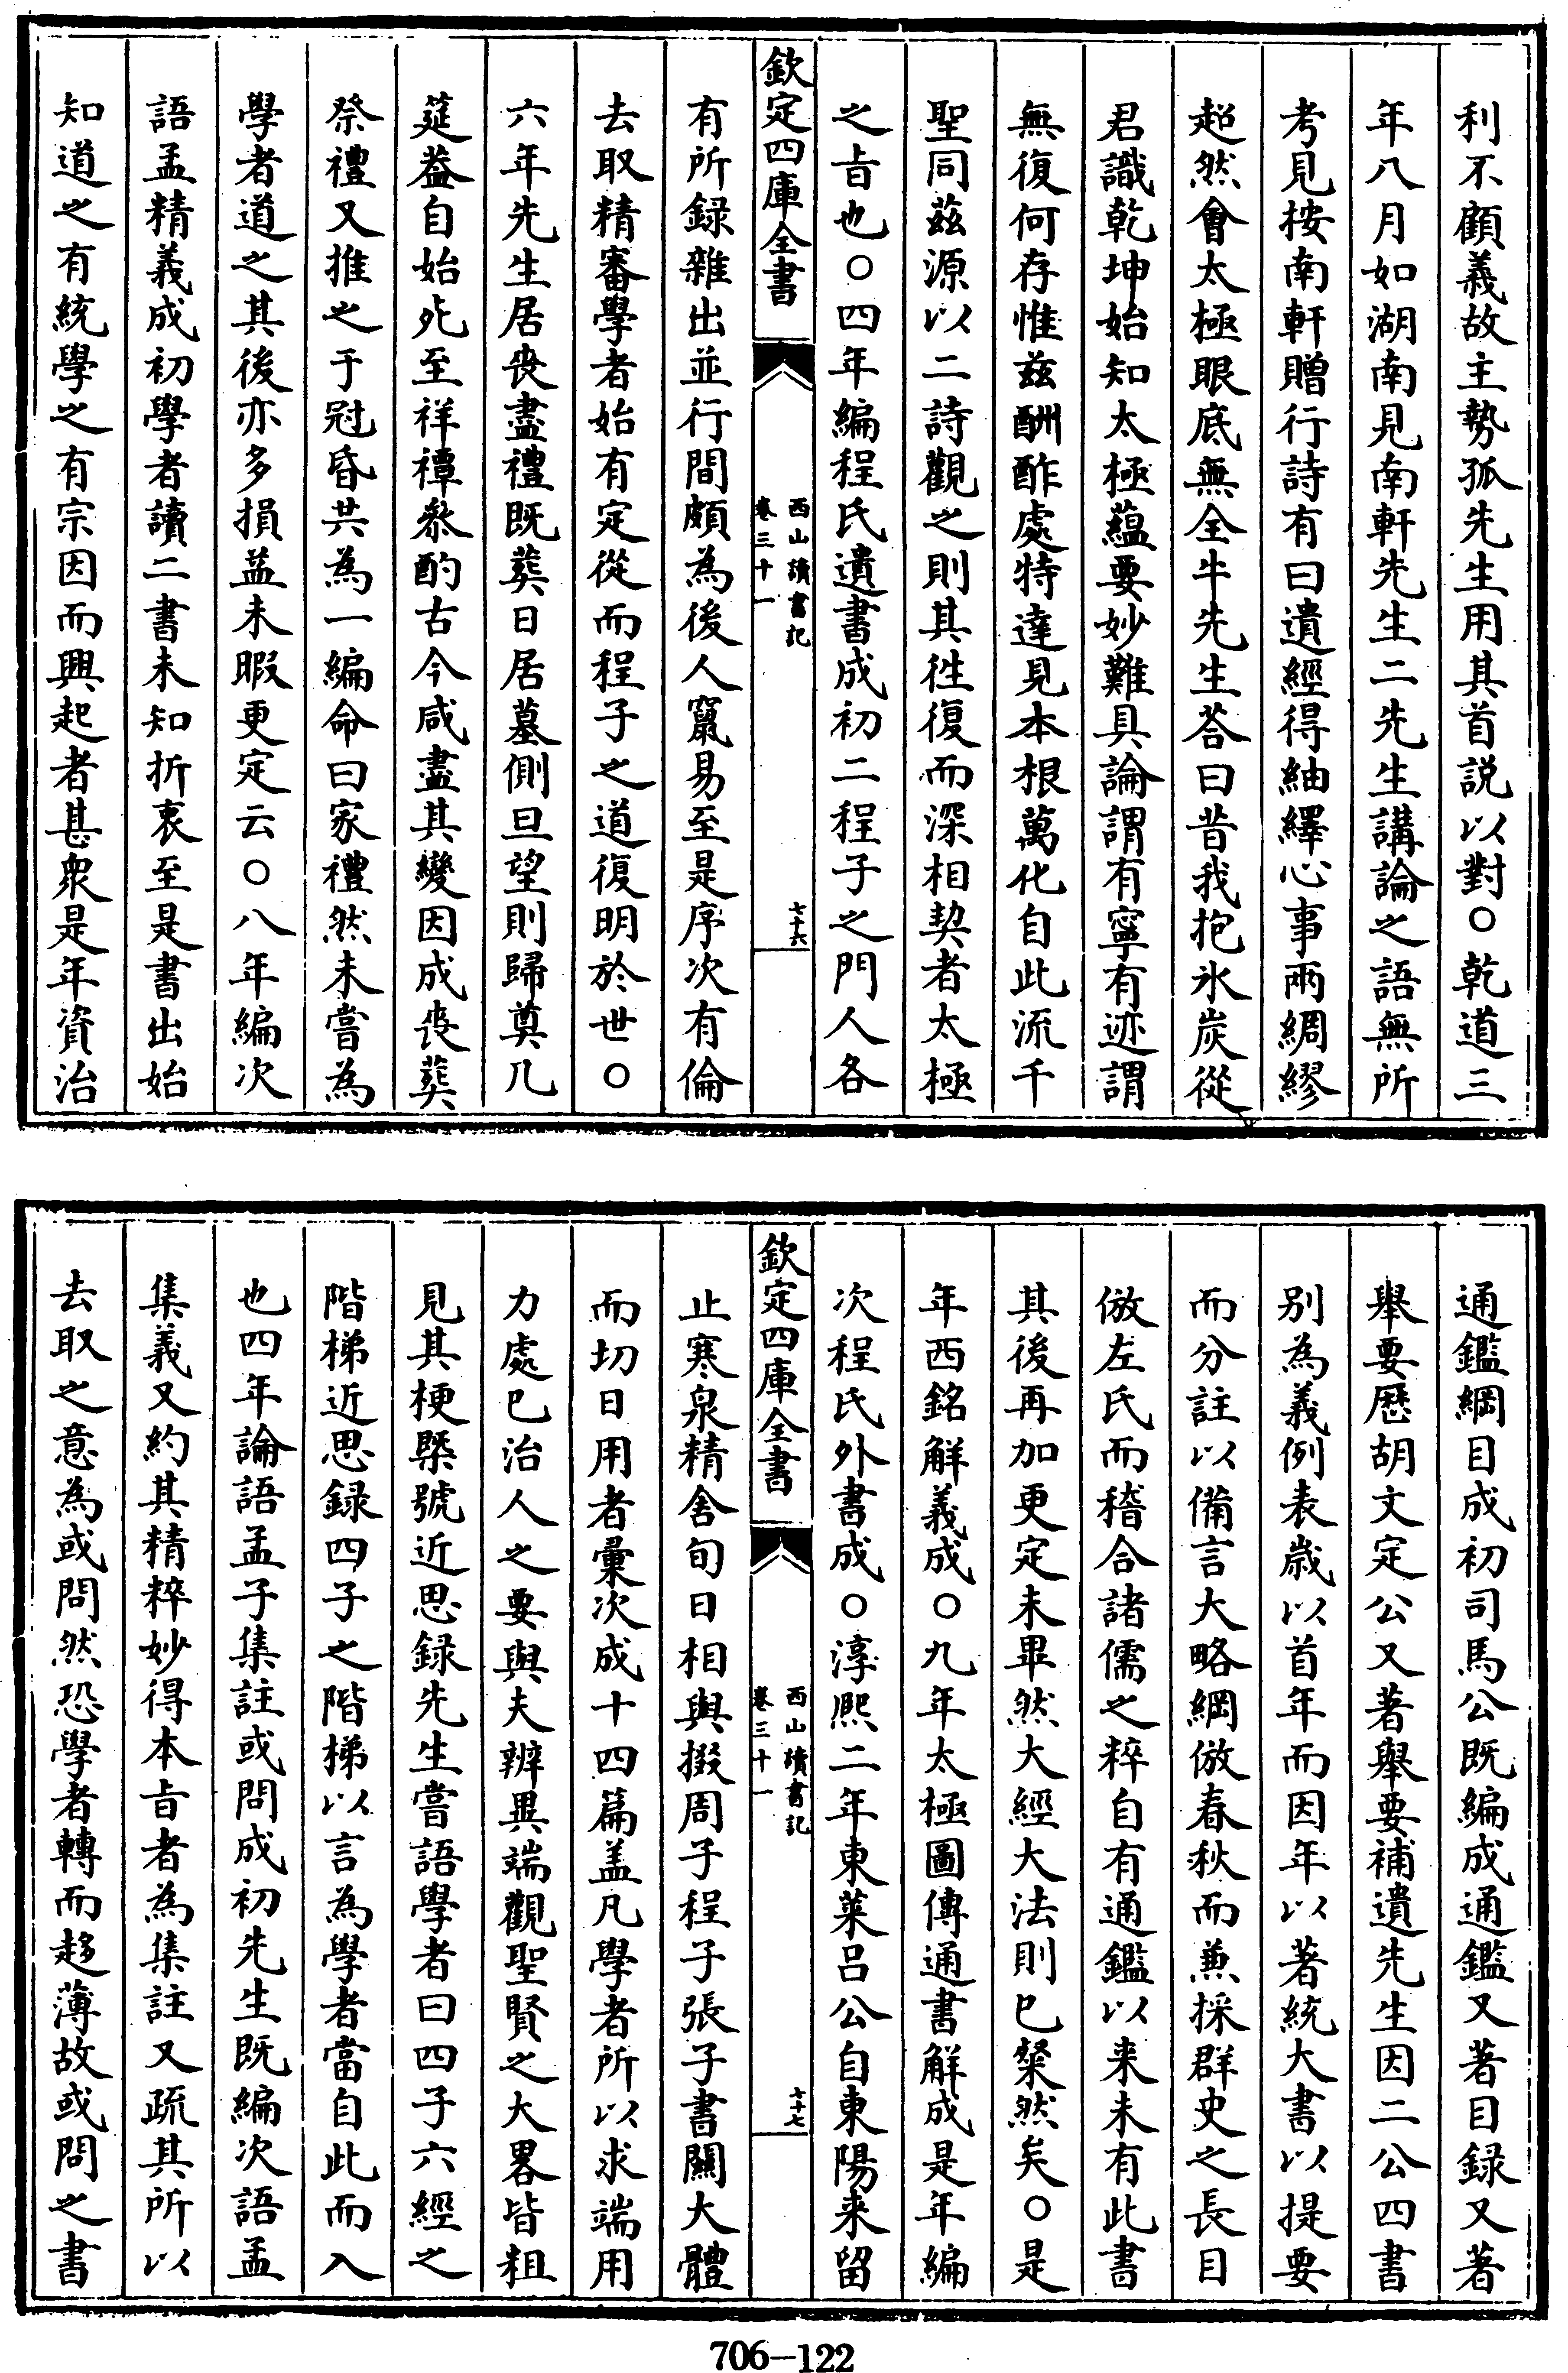 利不顧義故主勢孤先生用其首説以對○乾道三
年八月如湖南見南軒先生二先生講論之語無所
考見按南軒贈行詩有曰遺經得紬繹心事兩綢繆
超然會太極眼底無全牛先生荅曰昔我抱氷炭從
君識乾坤始知太極蘊要妙難具論謂有寧有迹謂
無復何存惟兹酬酢處特達見本根萬化自此流千
聖同茲源以二詩觀之則其徃復而深相契者太極
之㫖也○四年編程氏遺書成初二程子之門人各
欽定四庫全書
西山讀書記
卷三十一
七十六
有所録雜出並行間頗為後人竄易至是序次有倫
去取精審學者始有定從而程子之道復明於世○
六年先生居丧盡禮既葬日居墓側旦望則歸奠几
筵葢自始死至祥禫叅酌古今咸盡其變因成丧葬
祭禮又推之于冠昏共為一編命曰家禮然未嘗為
學者道之其後亦多損益未暇更定云○八年編次
語孟精義成初學者讀二書未知折衷至是書出始
知道之有統學之有宗因而興起者甚衆是年資治
通鑑綱目成初司馬公既編成通鑑又著目録又著
舉要歷胡文定公又著舉要補遺先生因二公四書
别為義例表歳以首年而因年以著統大書以提要
而分註以備言大略綱倣春秋而兼採群史之長目
倣左氏而稽合諸儒之粹自有通鑑以来未有此書
其後再加更定未畢然大經大法則已粲然矣○是
年西銘解義成○九年太極圖傳通書解成是年編
次程氏外書成○淳熙二年東萊呂公自東陽来留
欽定四庫全書
西山讀書記
卷三十一
七十七
止寒泉精舍旬日相與掇周子程子張子書關大體
而切日用者彚次成十四篇盖凡學者所以求端用
力處已治人之要與夫辨異端觀聖賢之大畧皆粗
見其梗槩號近思録先生嘗語學者曰四子六經之
階梯近思録四子之階梯以言為學者當自此而入
也四年論語孟子集註或問成初先生既編次語孟
集義又約其精粹妙得本㫖者為集註又疏其所以
去取之意為或問然恐學者轉而趍薄故或問之書
706—122